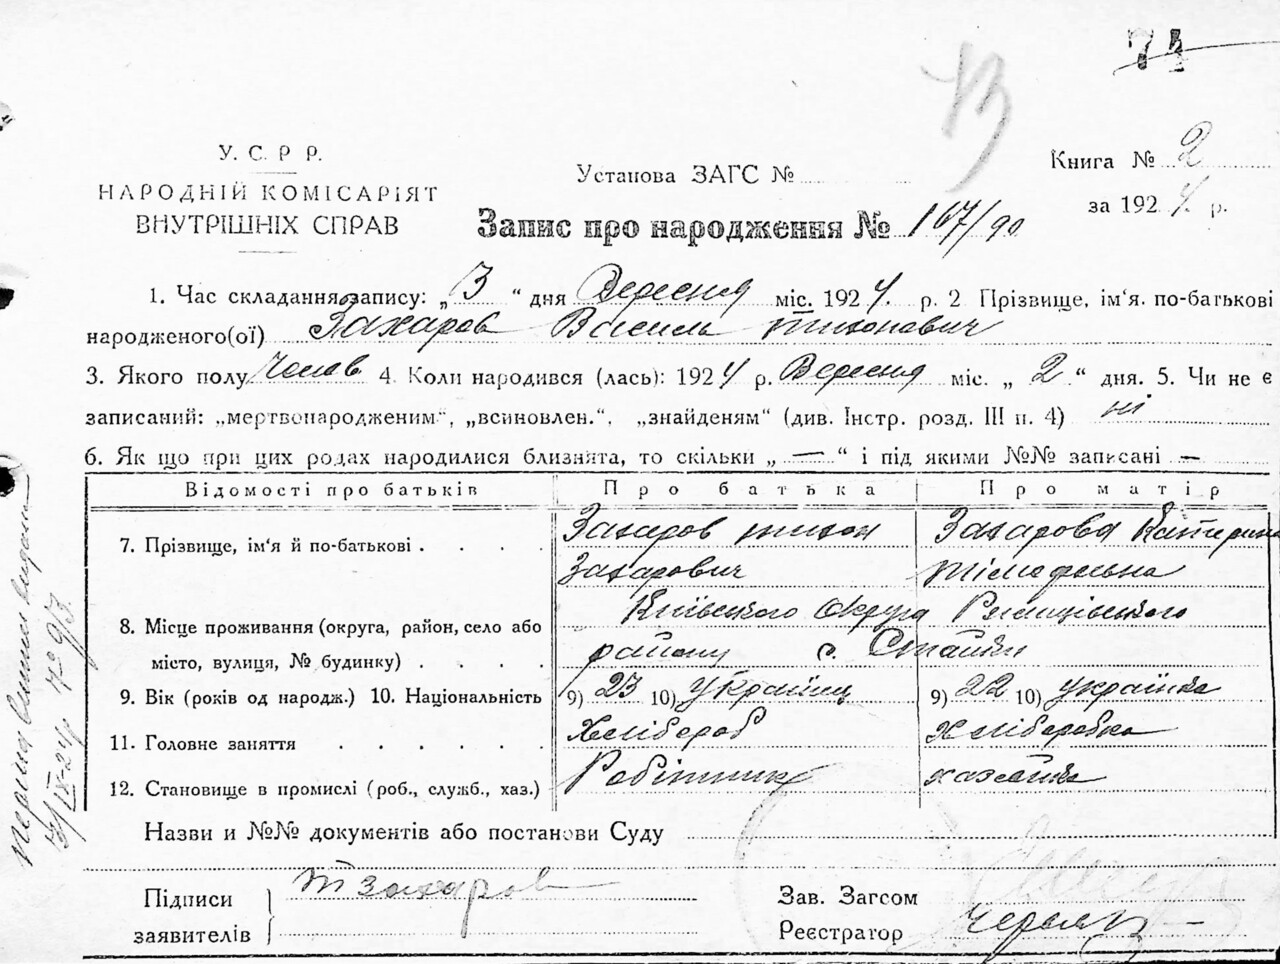 74
73
У. С. Р Р.
НАРОДНІЙ КОМІСАРІЯТ
ВНУТРІШНІХ СПРАВ
Установа ЗАГС №
Книга № 2
за 1924 р.
Запис про народження № 167/90
1. Час складання запису: „3“ дня Вересня міс. 1924 р. 2 Прізвище, ім'я. по-батькові
народженого(ої) Захаров Василь Тихонович
3. Якого полу Чолов 4. Коли народився (лась): 1924 р. Вересня міс. „2“ дня. 5. Чи не є
записаний: „мертвонародженим“, „всиновлен.“, „знайденям“ (див. Інстр. розд. III п. 4) ні
6. Як що при цих родах народилися близнята, то скільки „—“ і під якими №№ записані —
Відомості про батьків Про батька Про матір
7. Прізвище, ім'я й по-батькові . . . . Захаров Тихон Захарова Катерина
Захарович Тімофеївна
Київського Округа Ржищівського
8. Місце проживання (округа, район, село або
місто, вулиця, № будинку) . . . . району с. Стайки
9. Вік (років од народж.) 10. Національність 9) 23 10) Українц 9) 22 10) Українка
11. Головне заняття . . . . . . Хлібороб Хліборобка
12. Становище в промислі (роб., служб., хаз.) Робітник хазяйка
Назви и №№ документів або постанови Суду
Підписи
заявителів
Т Захаров
Зав. Загсом
Реєстратор
3/IX-24 р. № 913